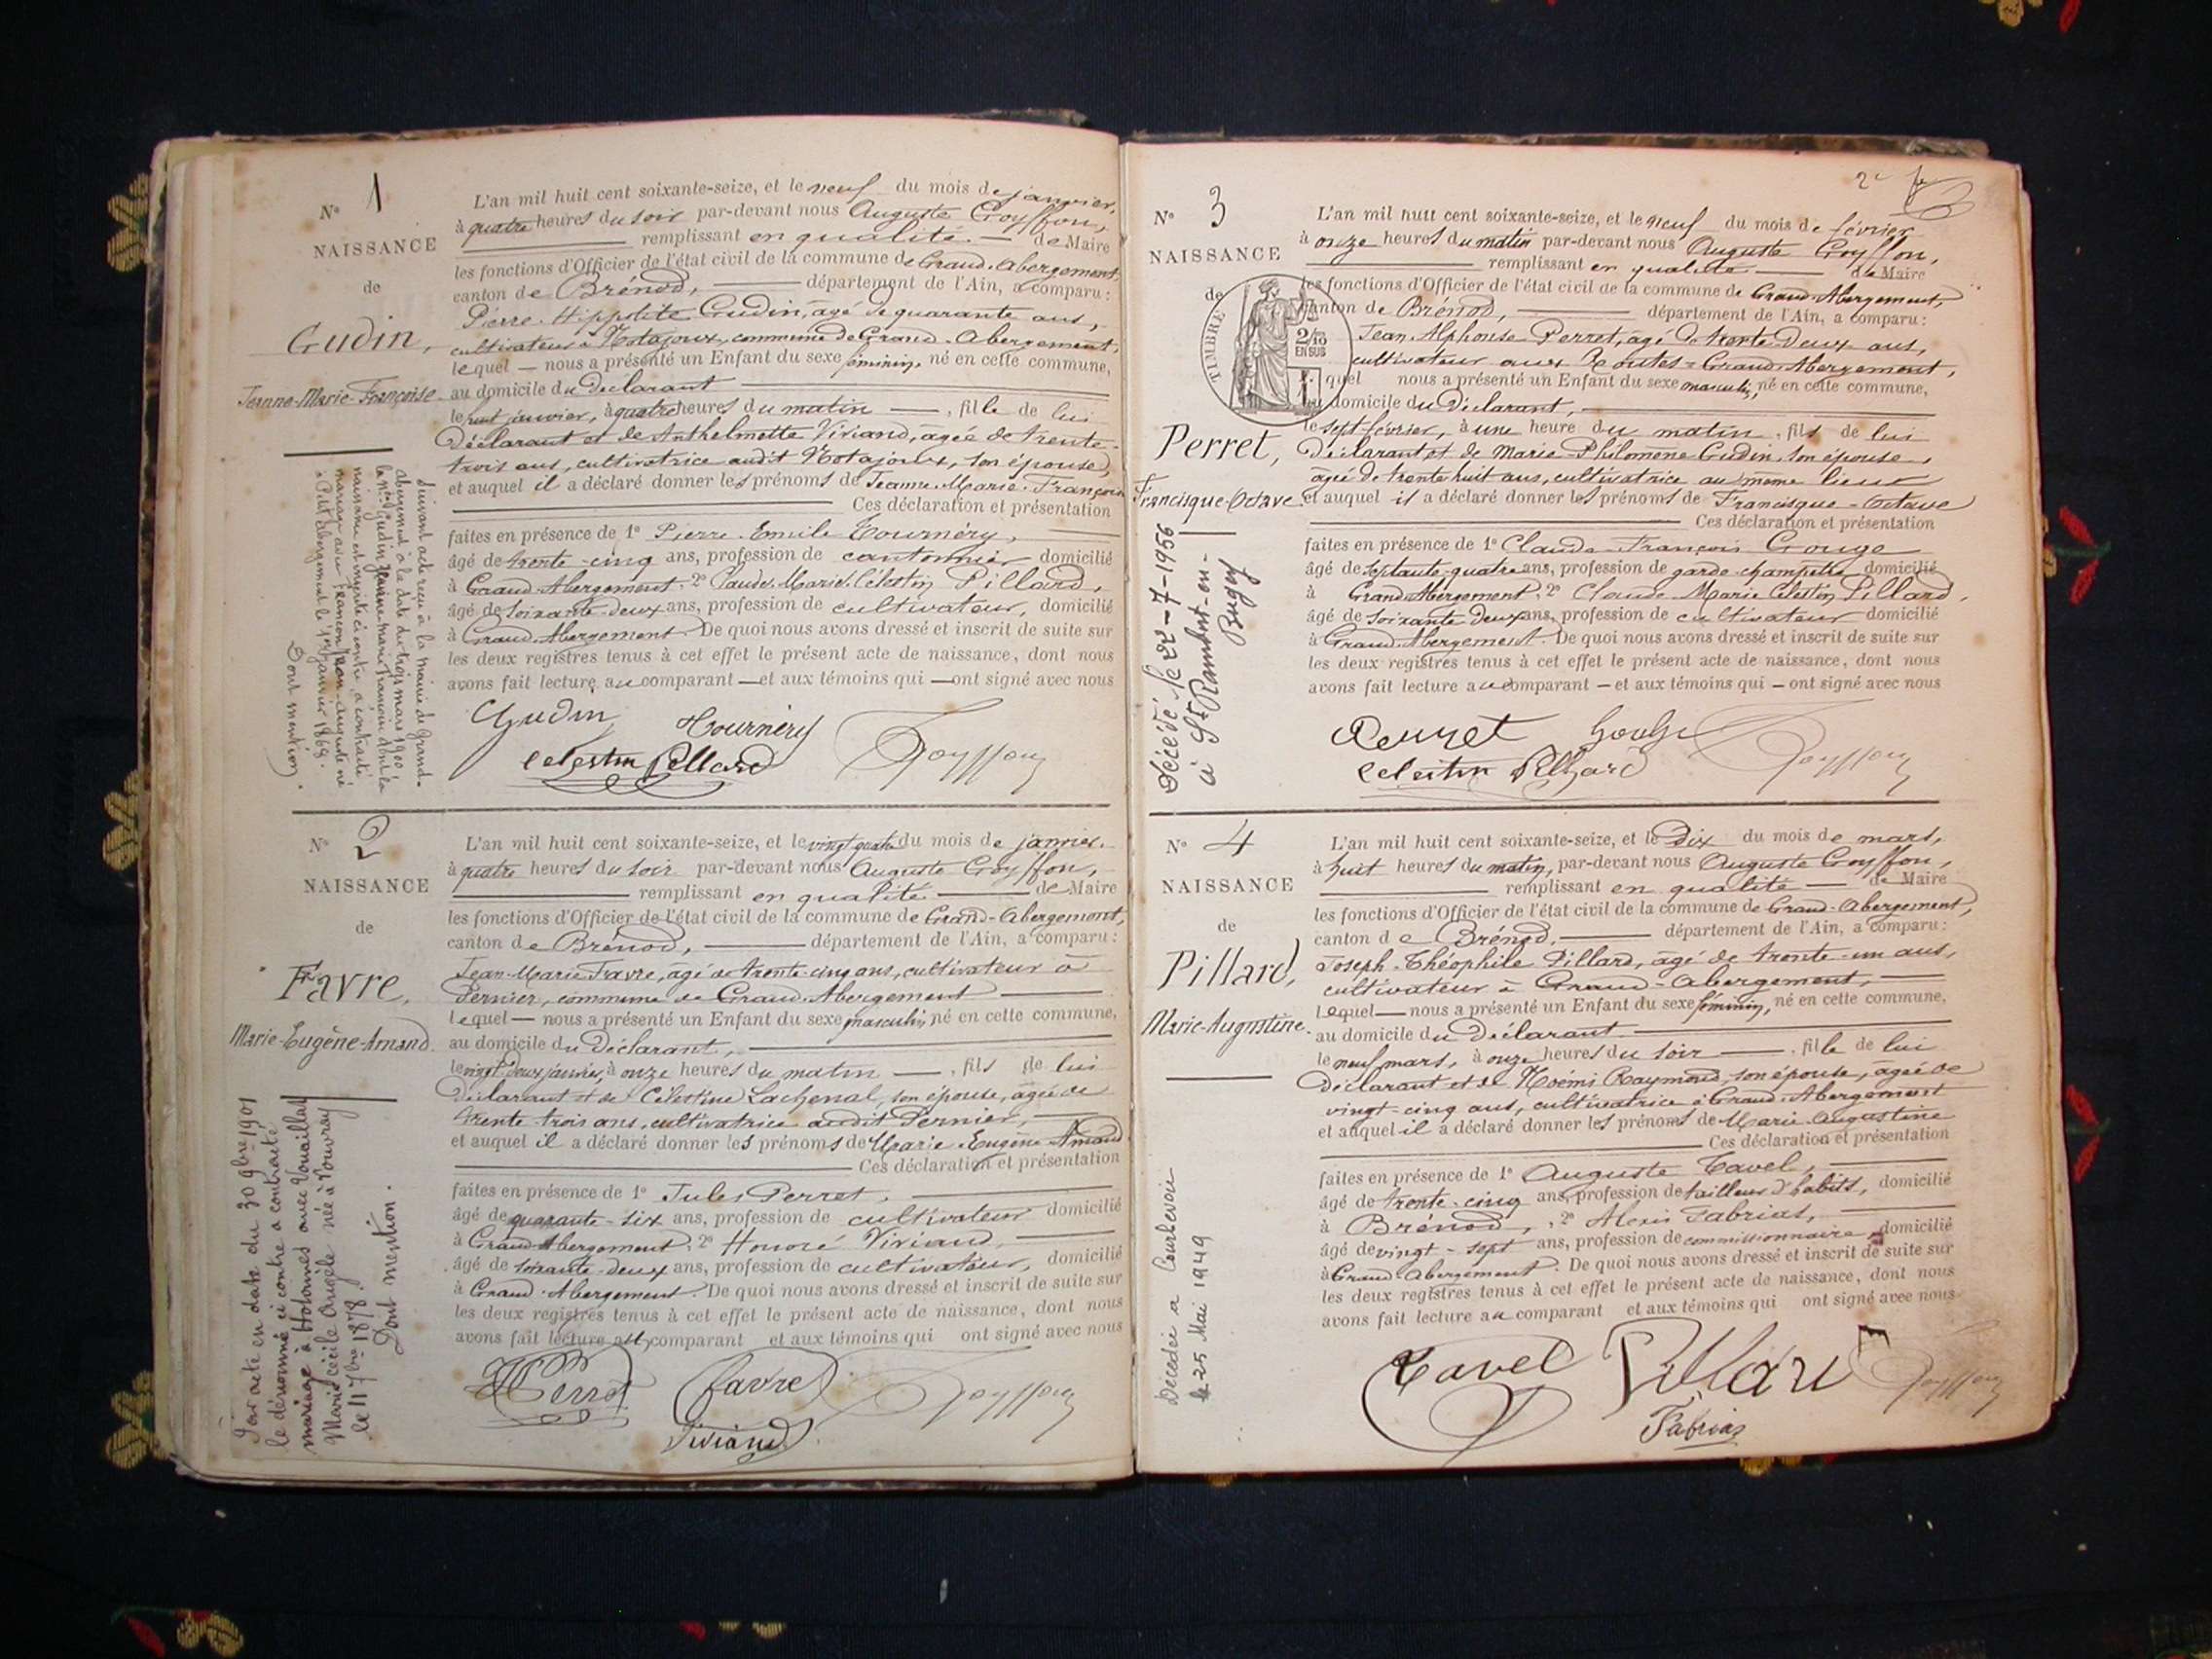 N° 1
NAISSANCE
de
Gudin,
Jeanne-Marie-Françoise
L'an mil huit cent soixante-seize, et le neuf du mois de janvier,
à quatre heures du soir par-devant nous Auguste Goyffon,
remplissant en qualité de Maire
les fonctions d'Officier de l'état civil de la commune de Grand-Abergement,
canton de Brénod, département de l'Ain, a comparu:
Pierre-Hippolite Gudin, âgé de quarante ans,
cultivateur à Hotajoux, commune de Grand-Abergement,
lequel nous a présenté un Enfant du sexe féminin, né en cette commune,
au domicile du Déclarant
le huit janvier, à quatre heures du matin, fille de lui
Déclarant et de Anthelmette Viviand, âgée de trente-
trois ans, cultivatrice audit Hotajoux, son épouse,
et auquel il a déclaré donner les prénoms de Jeanne-Marie-Françoise
Ces déclaration et présentation
faites en présence de 1° Pierre-Emile Tournéry,
âgé de trente-cinq ans, profession de cantonnier domicilié
à Grand-Abergement, 2° Claude-Marie-Célestin Pillard,
âgé de soixante-deux ans, profession de cultivateur, domicilié
à Grand-Abergement. De quoi nous avons dressé et inscrit de suite sur
les deux registres tenus à cet effet le présent acte de naissance, dont nous
avons fait lecture au comparant et aux témoins qui ont signé avec nous
Gudin Tournéry
Celestin Pillard Goyffon
Suivant acte reçu à la mairie de Grand-
Abergement à la date du trois mars 1900
la née Gudin Jeanne-Marie-Françoise dont la
naissance est inscrite ci-contre, a contracté
mariage avec Auguste né
à Petit Abergement le 1er janvier 1869.
Dont mention.
N° 2
NAISSANCE
de
Favre,
Marie-Eugène-Amand.
L'an mil huit cent soixante-seize, et le vingt quatre du mois de janvier.
à quatre heures du soir par-devant nous Auguste Goyffon,
remplissant en qualité de Maire
les fonctions d'Officier de l'état civil de la commune de Grand-Abergement,
canton de Brénod, département de l'Ain, a comparu:
Jean-Marie Favre, âgé de trente-cinq ans, cultivateur à
Pernier, commune de Grand-Abergement
lequel nous a présenté un Enfant du sexe masculin, né en cette commune,
au domicile du Déclarant,
le vingt deux janvier, à onze heures du matin, fils de lui
Déclarant et de Célestine Lachenal, son épouse, âgée de
trente-trois ans, cultivatrice audit Pernier,
et auquel il a déclaré donner les prénoms de Marie-Eugène-Amand
Ces déclaration et présentation
faites en présence de 1° Jules Perret,
âgé de quarante-six ans, profession de cultivateur domicilié
à Grand-Abergement, 2° Honoré Viviand,
âgé de soixante-deux ans, profession de cultivateur, domicilié
à Grand-Abergement. De quoi nous avons dressé et inscrit de suite sur
les deux registres tenus à cet effet le présent acte de naissance, dont nous
avons fait lecture au comparant et aux témoins qui ont signé avec nous
Perret Favre Goyffon
Viviand
Par acte en date du 30 9bre 1901
le dénommé ci contre a contracté
mariage à Hotonnes avec Vouaillat
Marie Cécile Angèle née à Pouvray
le 11 7bre 1878.
Dont mention.
2e
N° 3
NAISSANCE
de
TIMBRE
2/10
EN SUS
Perret,
Francisque-Octave
L'an mil huit cent soixante-seize, et le neuf du mois de février
à onze heures du matin par-devant nous Auguste Goyffon,
remplissant en qualité de Maire
les fonctions d'Officier de l'état civil de la commune de Grand-Abergement,
canton de Brénod, département de l'Ain, a comparu:
Jean-Alphonse Perret, âgé de trente-deux ans,
cultivateur aux Routes-Grand-Abergement,
lequel nous a présenté un Enfant du sexe masculin, né en cette commune,
au domicile du Déclarant,
le sept février, à une heure du matin, fils de lui
Déclarant et de Marie-Philomène Gudin, son épouse,
âgée de trente huit ans, cultivatrice au même lieu
et auquel il a déclaré donner les prénoms de Francisque-Octave
Ces déclaration et présentation
faites en présence de 1° Claude-François Gouge
âgé de septante-quatre ans, profession de garde-champêtre domicilié
à Grand-Abergement, 2° Claude Marie Célestin Pillard,
âgé de soixante-deux ans, profession de cultivateur domicilié
à Grand-Abergement. De quoi nous avons dressé et inscrit de suite sur
les deux registres tenus à cet effet le présent acte de naissance, dont nous
avons fait lecture au comparant et aux témoins qui ont signé avec nous
Perret Gouge
Celestin Pillard Goyffon
Décédé le 22-7-1956
à St Rambert-en-
Bugey
N° 4
NAISSANCE
de
Pillard,
Marie-Augustine.
L'an mil huit cent soixante-seize, et le Dix du mois de mars,
à huit heures du matin, par-devant nous Auguste Goyffon,
remplissant en qualité de Maire
les fonctions d'Officier de l'état civil de la commune de Grand-Abergement,
canton de Brénod, département de l'Ain, a comparu:
Joseph-Théophile Pillard, âgé de trente-un ans,
cultivateur à Grand-Abergement,
lequel nous a présenté un Enfant du sexe féminin, né en cette commune,
au domicile du Déclarant
le neuf mars, à onze heures du soir, fille de lui
Déclarant et de Noémi Raymond, son épouse, âgée de
vingt-cinq ans, cultivatrice à Grand-Abergement
et auquel il a déclaré donner les prénoms de Marie-Augustine
Ces déclaration et présentation
faites en présence de 1° Auguste Tavel,
âgé de trente-cinq ans, profession de tailleur d'habits, domicilié
à Brénod, 2° Alexis Fabrias,
âgé de vingt-sept ans, profession de commissionnaire domicilié
à Grand-Abergement. De quoi nous avons dressé et inscrit de suite sur
les deux registres tenus à cet effet le présent acte de naissance, dont nous
avons fait lecture au comparant et aux témoins qui ont signé avec nous
Tavel Pillard Goyffon
Fabrias
Décédée à Courbevoie
le 25 Mai 1949